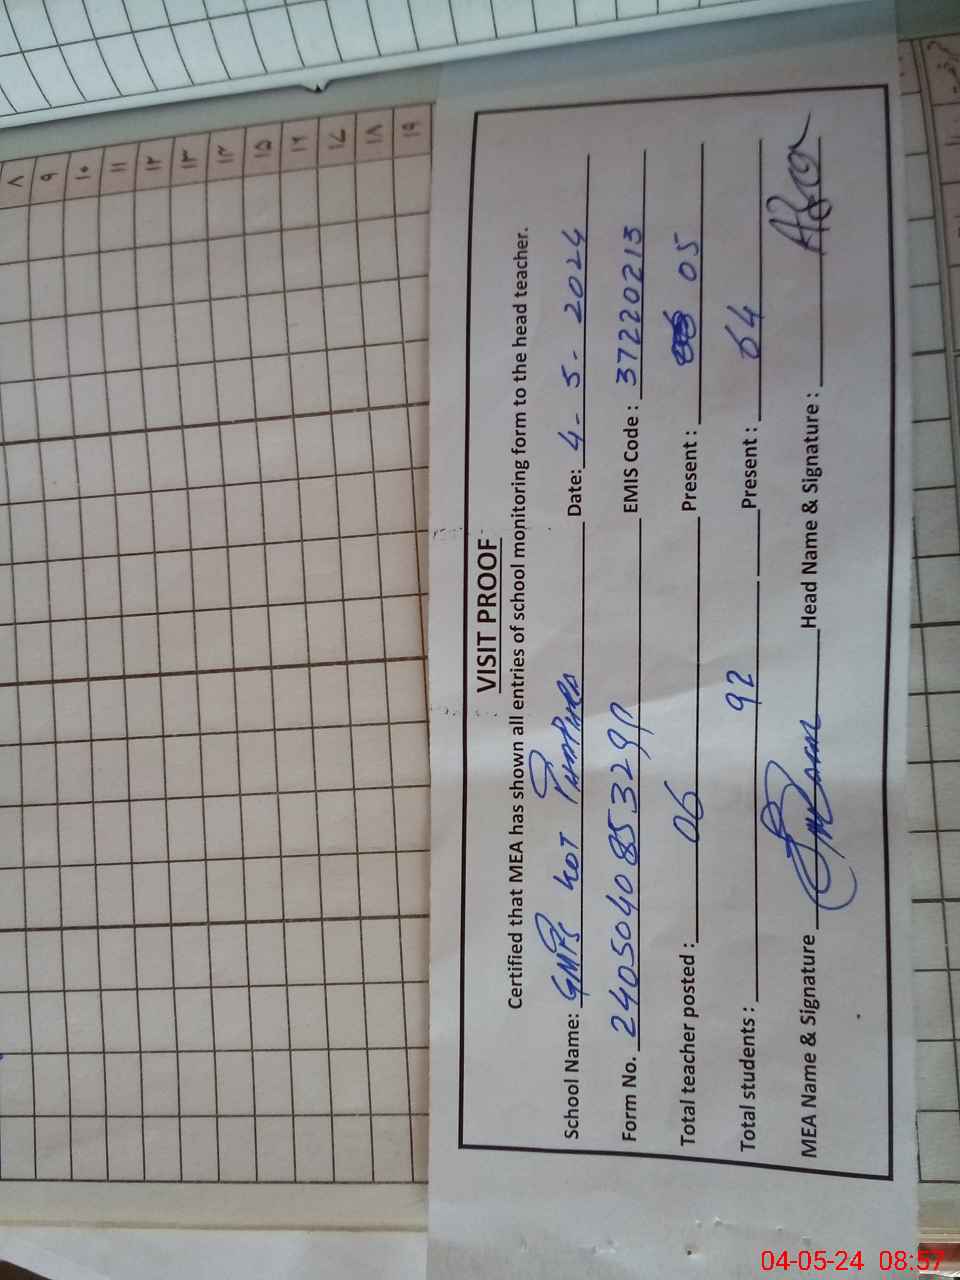 VISIT PROOF
Certified that MEA has shown all entries of school monitoring form to the head teacher.
School Name: GMPS KOT Date: 4-5-2024
Form No. EMIS Code : 37220213
Total teacher posted : 06 Present : 05
Total students : 92 Present : 64
MEA Name & Signature Head Name & Signature :
۸
۹
۱۰
۱۱
۱۲
۱۳
۱۴
۱۵
۱۶
۱۷
۱۸
۱۹
04-05-24 08:57